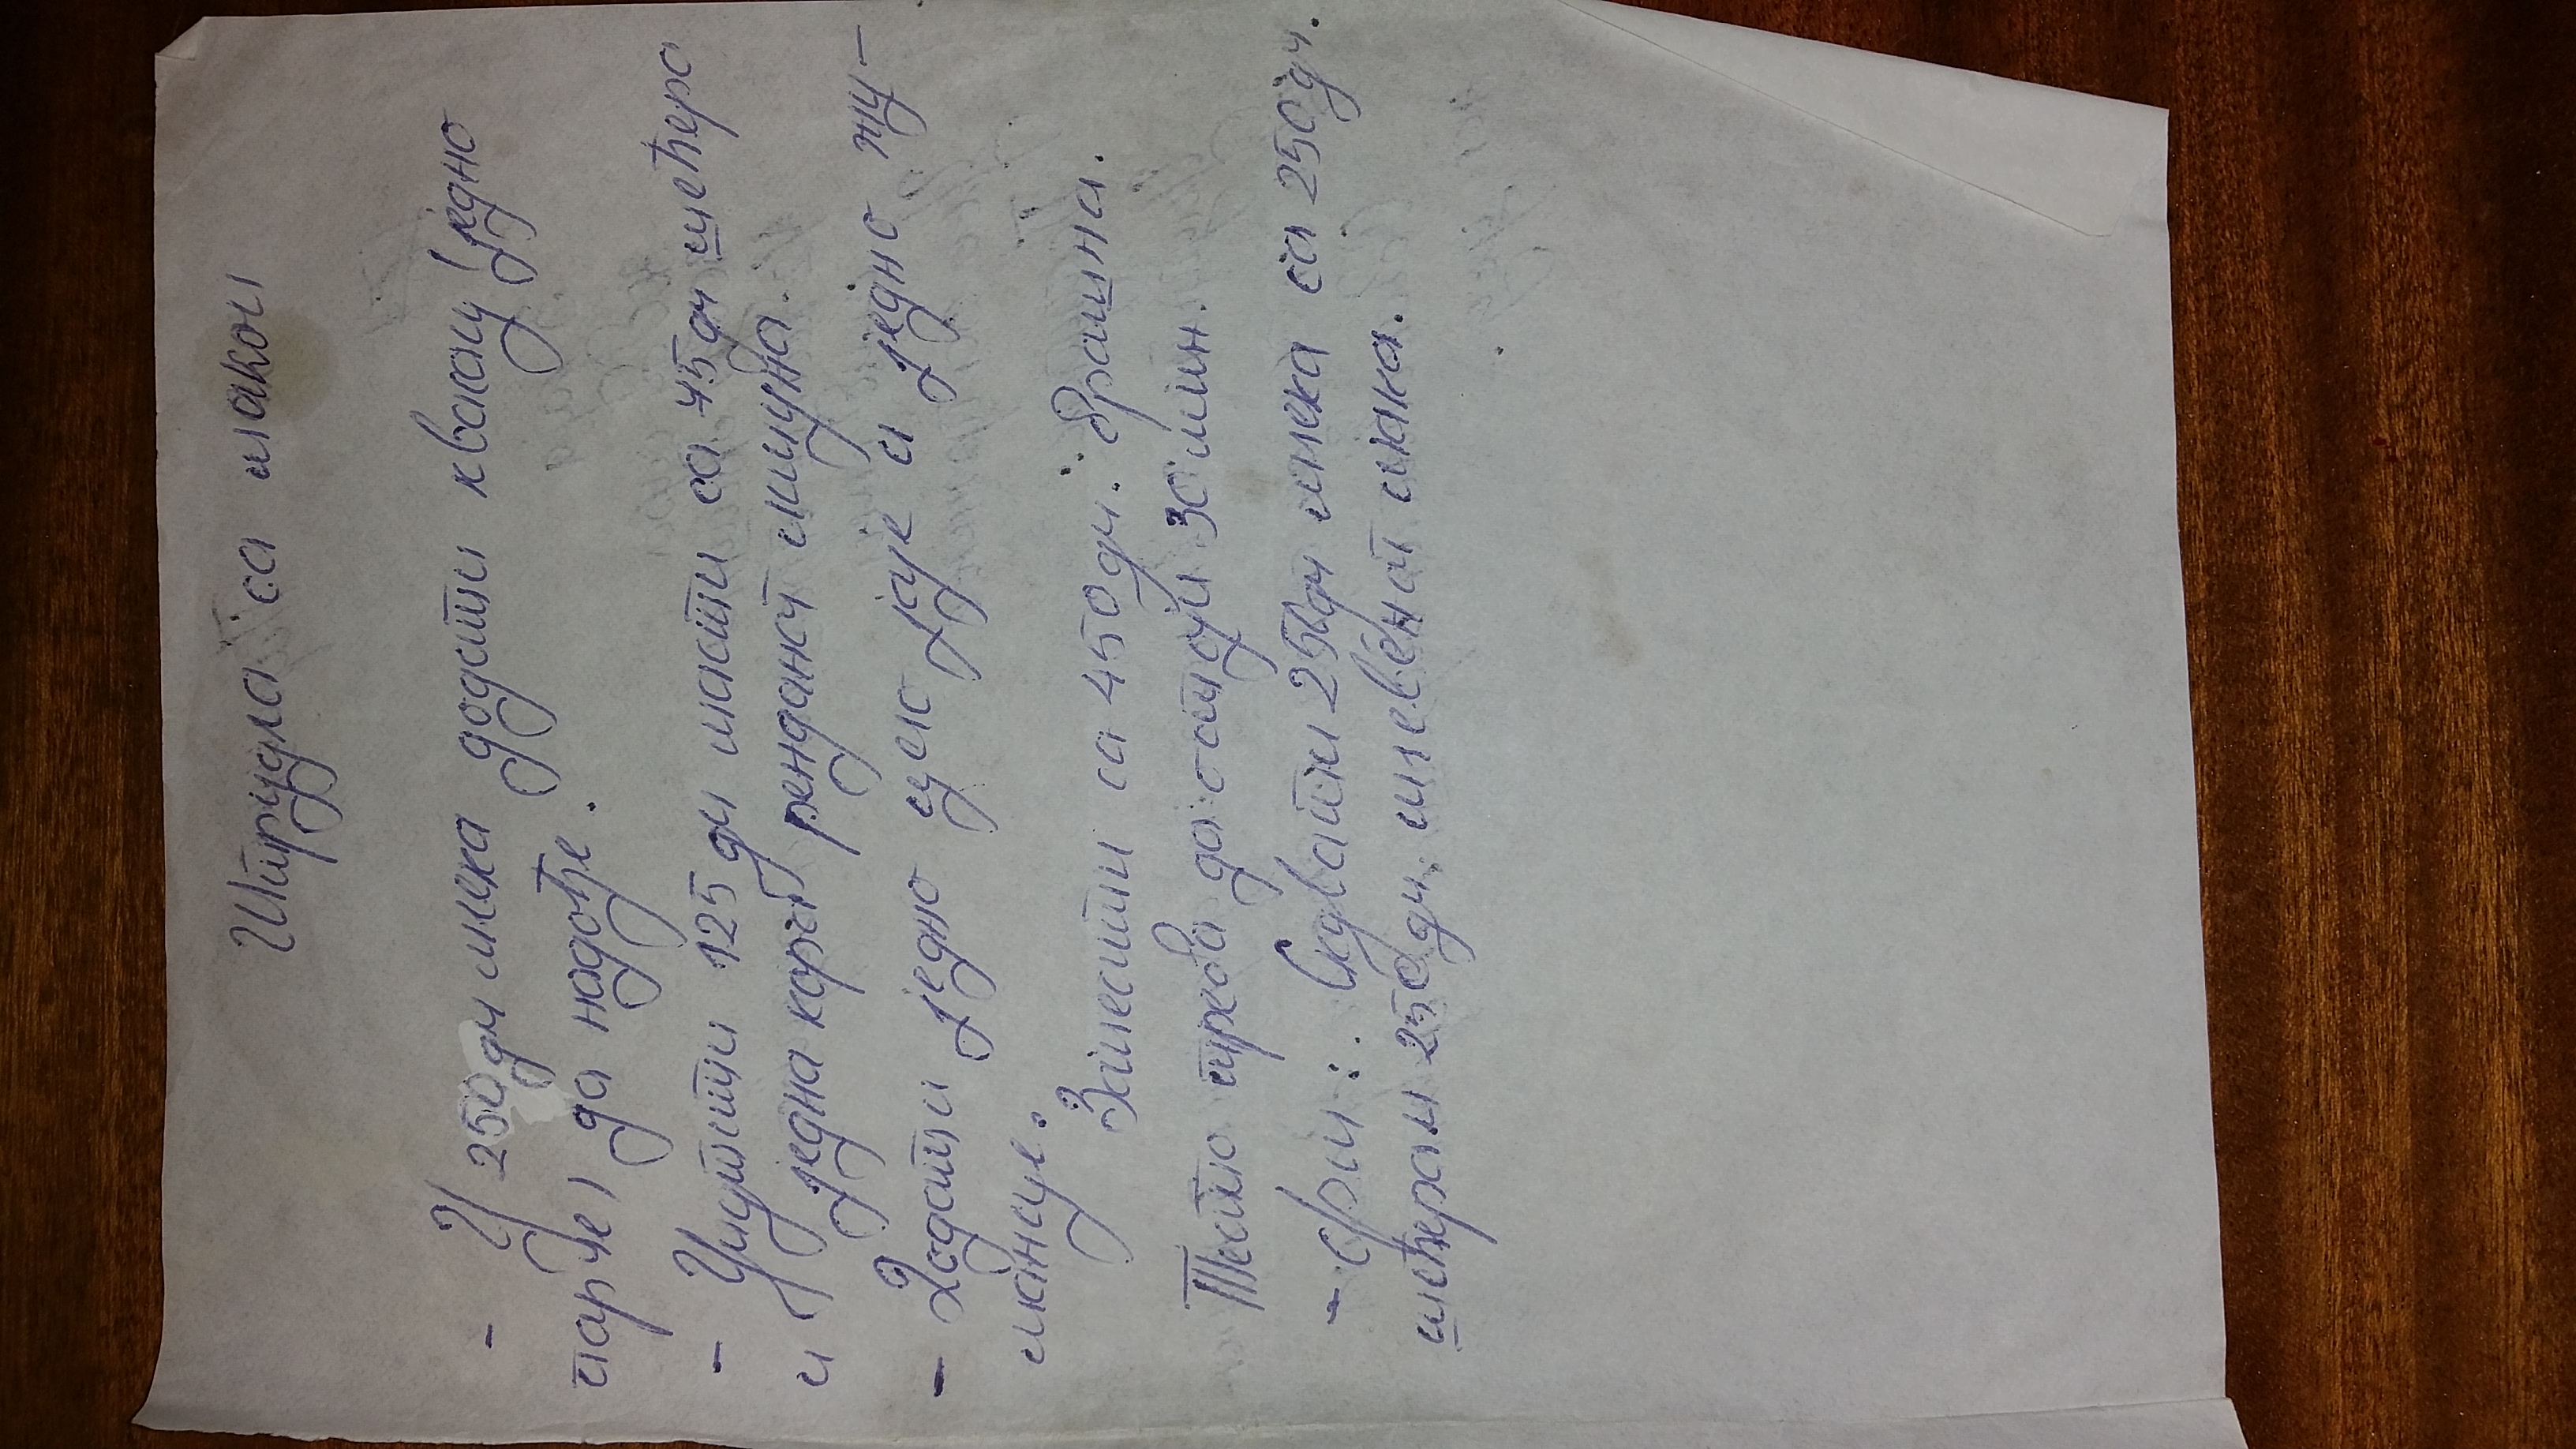 Штрудла са маком
- У 250 дч млека додати квасац (једно
парче) да надође.
- Умутити 125 дч масти са 75 дч шећера
и једна кора ренданог лимуна.
- Додати једно цело јаје и једно жу-
манце.
Замесити са 450 дч. брашна.
Тесто треба да одстоји 30 мин.
- фил: Скувати 250 дч млека са 250 дч.
шећерам 250 дч. млевеног мака.